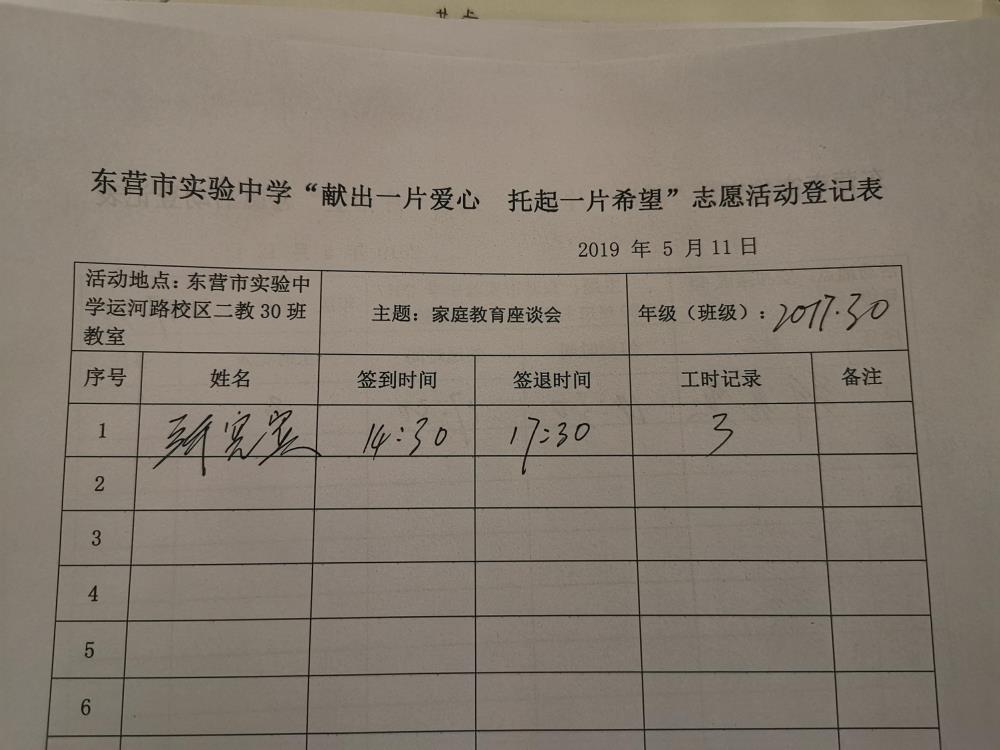 东营市实验中学“献出一片爱心 托起一片希望”志愿活动登记表
2019 年 5 月 11日
活动地点：东营市实验中
学运河路校区二教 30 班
教室
主题：家庭教育座谈会
年级（班级）：2017.30
序号 姓名 签到时间 签退时间 工时记录 备注
1 14:30 17:30 3
2
3
4
5
6